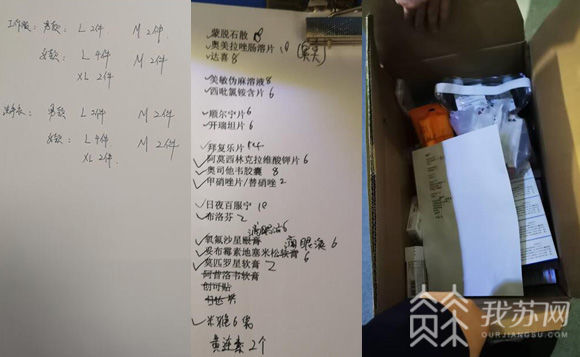 工作服: 男款 L 2件 M 2件.
女款 L 4件 M 2件.
XL 2件
男款 L 2件 M 2件
女款: L 4件 M 2件
XL 2件.
蒙脱石散 8
奥美拉唑肠溶片 10
达喜 8
美敏伪麻溶液 8
西吡氯铵含片 6
顺尔宁片 6
开瑞坦片 6
拜复乐片 14
阿莫西林克拉维酸钾片 6
奥司他韦胶囊 8
甲硝唑片/替硝唑 2
日夜百服宁 10
布洛芬 2
滴眼液 6
氧氟沙星眼膏 滴眼液 6
妥布霉素地塞米松软膏 6
莫匹罗星软膏 2
阿昔洛韦软膏
创可贴
黄连素 2个
我苏网
OURJIANGSU.COM